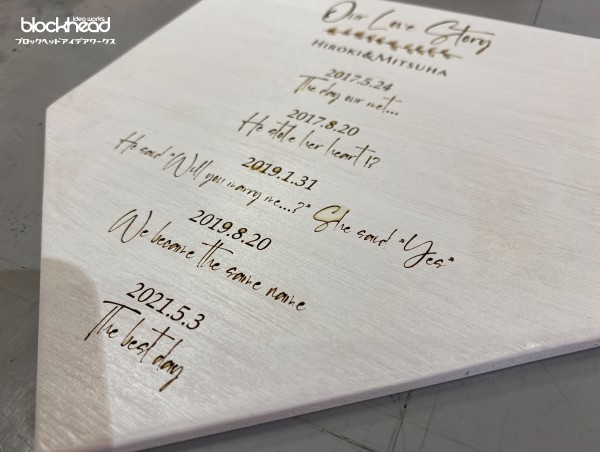 idea works
blockhead
ブロックヘッドアイデアワークス
Our Love Story
HIROKI&MITSUHA
2017.5.24
The day our met...
2017.8.20
He stole her heart !?
2019.1.31
He said "Will you marry me...?" She said "Yes"
2019.8.20
We became the same name
2021.5.3
The best day